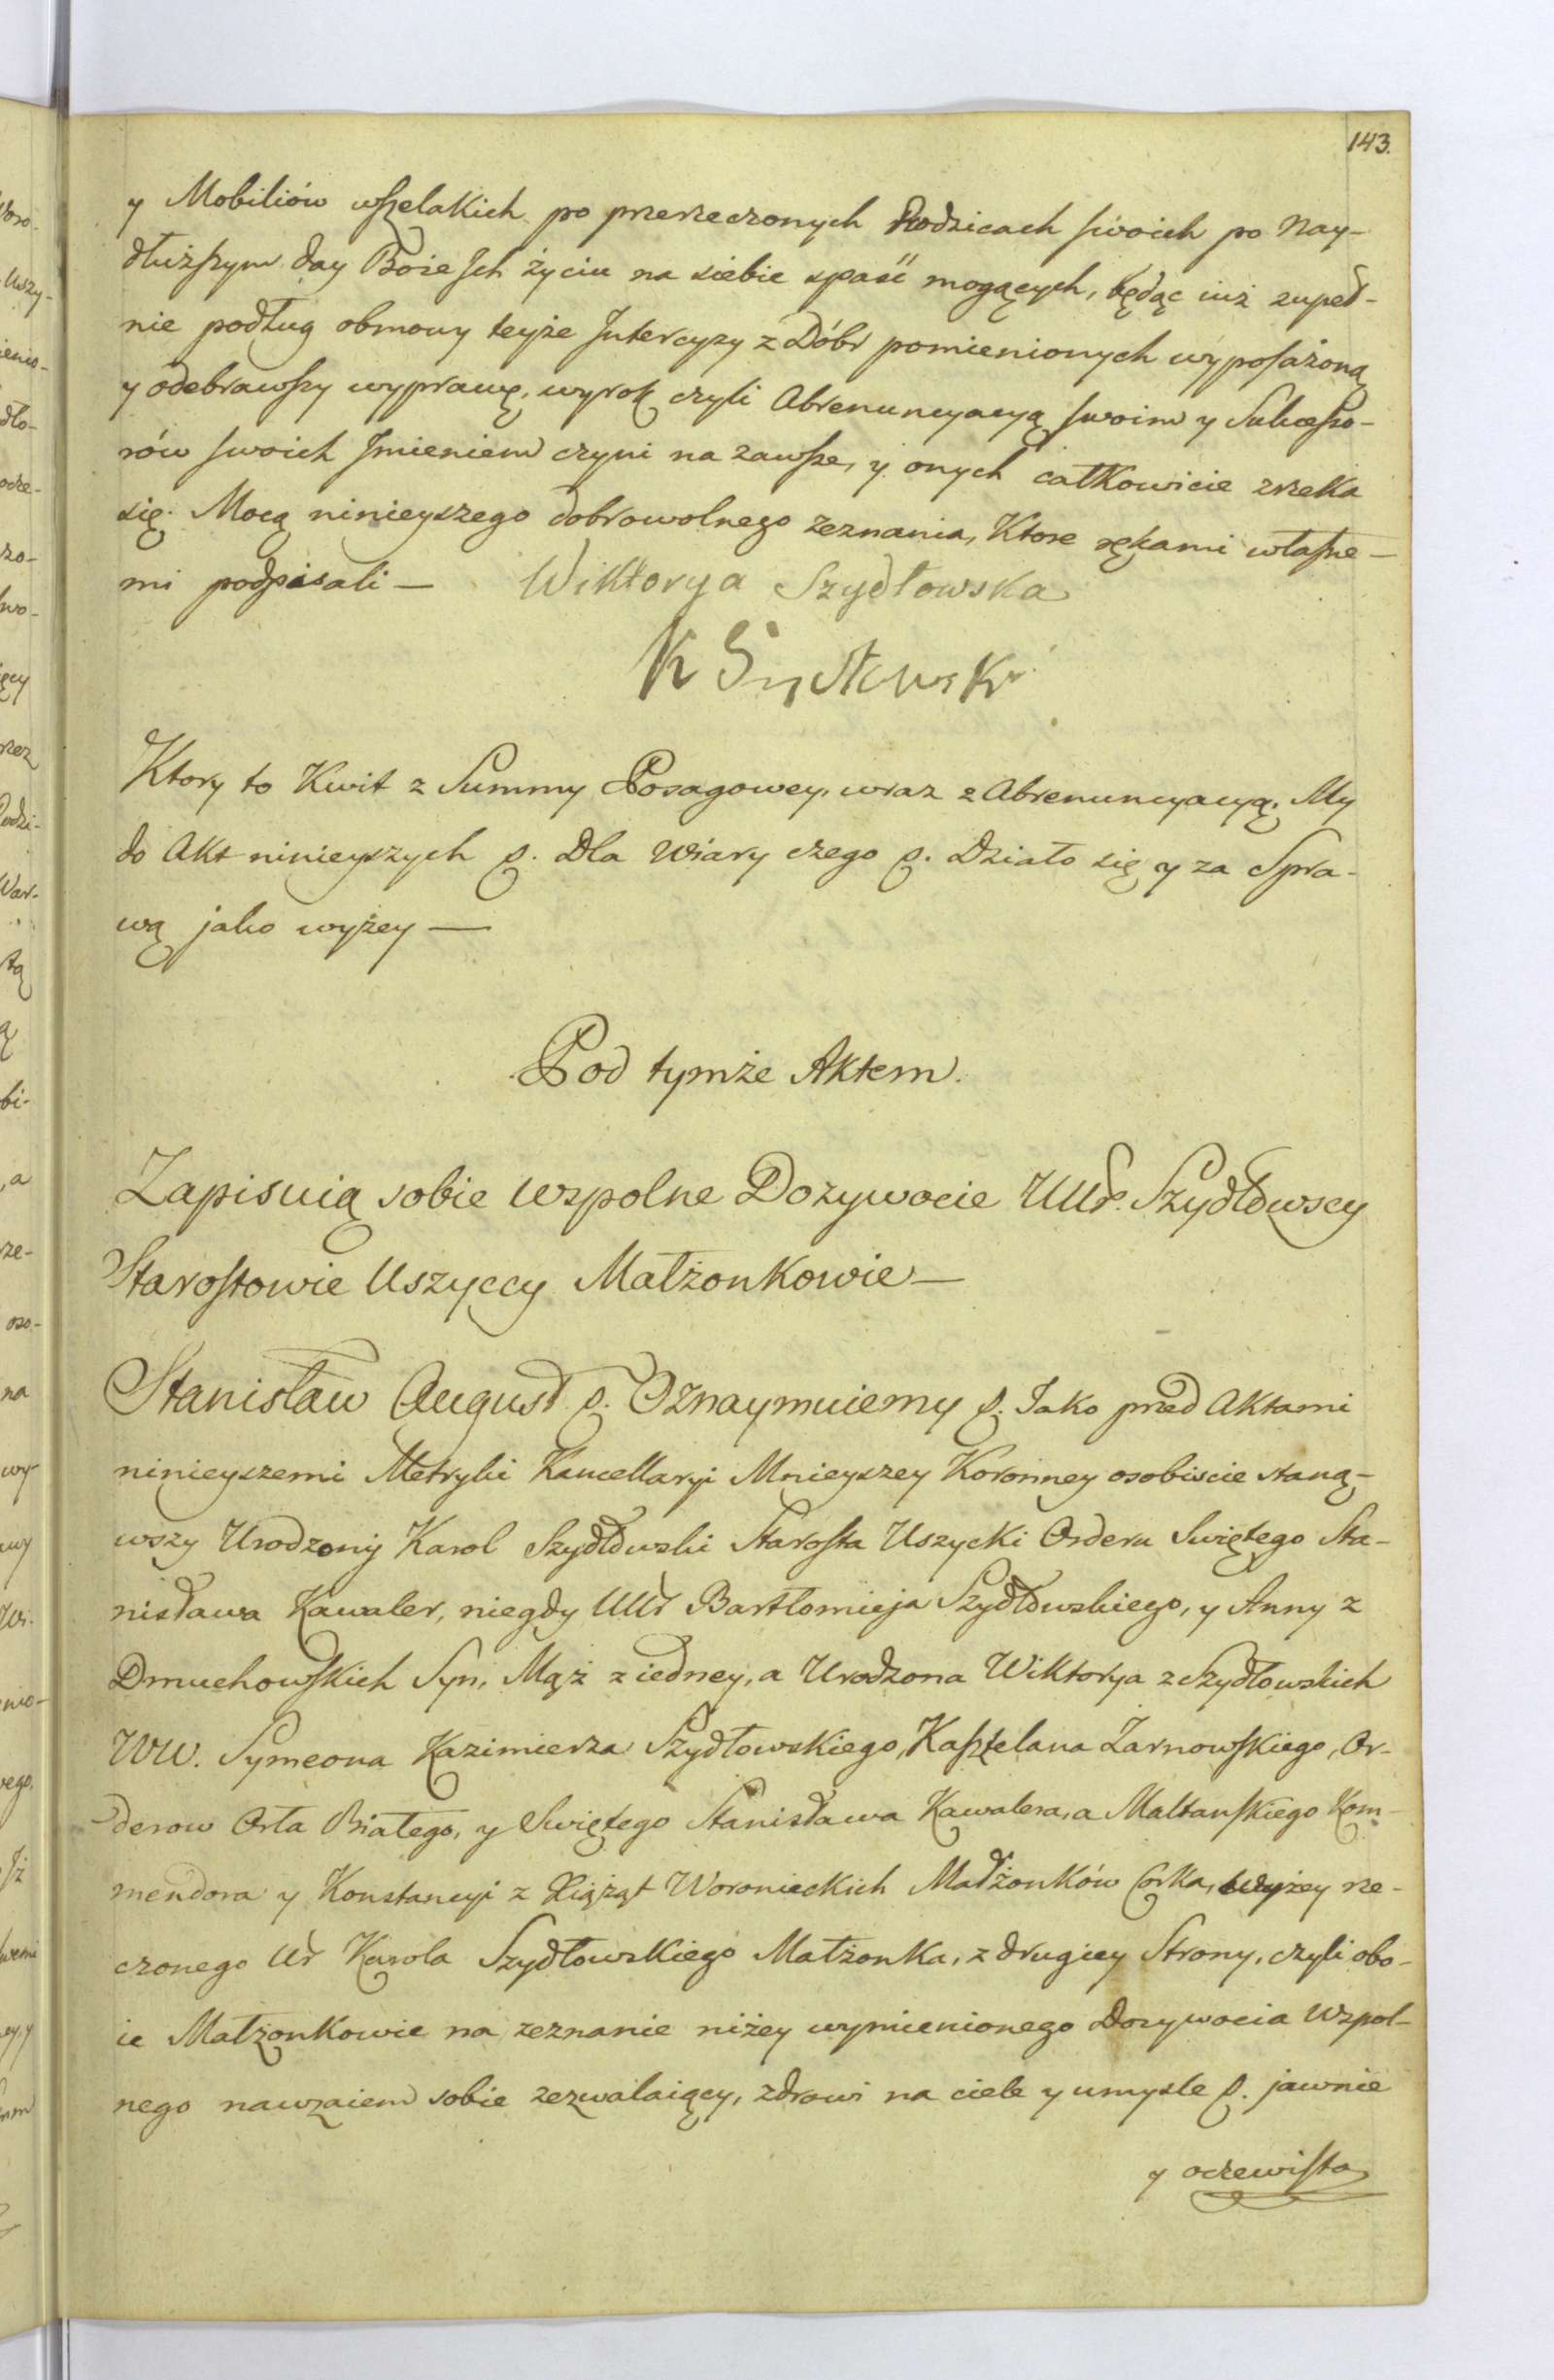 143.
y Mobiliów wszelakich po przerzeczonych Rodzicach swoich po nay-
dłuższym day Boże Ich życiu na siebie spaść mogących, będąc iuż zupeł-
nie podług obmowy teyże Intercyzy z Dóbr pomienionych wyposażoną
y odebrawszy wyprawę, wyrok czyli Abrenuncyacyą swoim y Sukcesso-
rów swoich Imieniem czyni na zawsze, y onych całkowicie zrzeka
się. Mocą ninieyszego dobrowolnego zeznania, Ktore rękami własne-
mi podpisali — Wiktorya Szydłowska
K Szydłowski
Ktory to Kwit z Summy Posagowey, wraz z Abrenuncyacyą, My
do Akt ninieyszych p. Dla Wiary czego p. Działo się y za Spra-
wą jako wyżey —
Pod tymże Aktem.
Zapisuią sobie wspolne Dozywocie UUr. Szydłowscy
Starostowie Uszyccy Małżonkowie —
Stanisław August p. Oznaymuiemy p. Iako przed Aktami
ninieyszemi Metryki Kancellaryi Mnieyszey Koronney osobiscie staną-
wszy Urodzony Karol Szydłowski Starosta Uszycki Orderu Swiętego Sta-
nisława Kawaler, niegdy UUr Bartłomieja Szydłowskiego, y Anny z
Dmuchowskich Syn, Mąż z iedney, a Urodzona Wiktorya z Szydłowskich
WW. Symeona Kazimierza Szydłowskiego, Kasztelana Żarnowskiego, Or-
derow Orła Białego, y Swiętego Stanisława Kawalera, a Maltanskiego Kom-
mendora y Konstancyi z Xiążąt Woronieckich Małżonków Corka, wyżey rze-
czonego Ur Karola Szydłowskiego Małżonka, z drugiey Strony, czyli obo-
ie Małżonkowie na zeznanie niżey wymienionego Dozywocia Wspol-
nego nawzaiem sobie zezwalaiący, zdrowi na ciele y umysle p. jawnie
y oczewisto